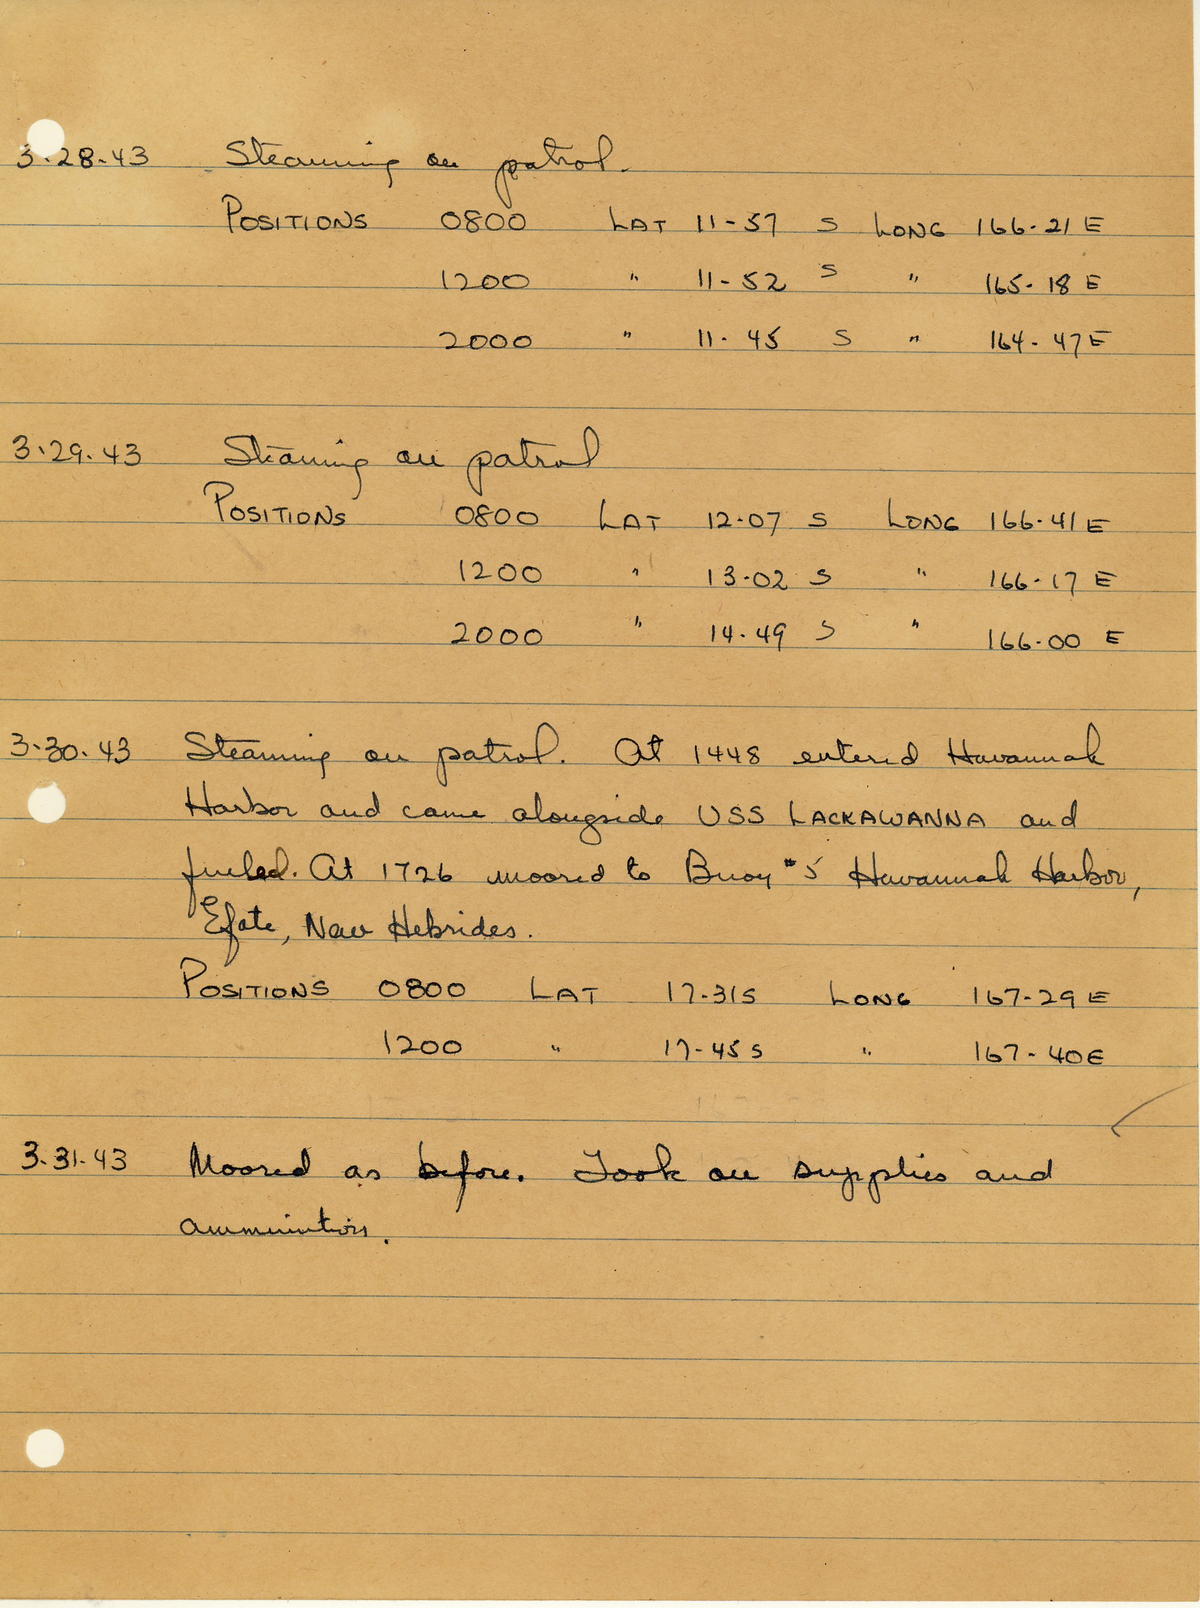 3-28-43 Steaming on patrol.
POSITIONS 0800 LAT 11-57 S LONG 166-21 E
1200 " 11-52 S " 165-18 E
2000 " 11-45 S " 164-47 E
3-29-43 Steaming on patrol
POSITIONS 0800 LAT 12-07 S LONG 166-41 E
1200 " 13-02 S " 166-17 E
2000 " 14-49 S " 166-00 E
3-30-43 Steaming on patrol. At 1448 entered Havannah
Harbor and came alongside USS LACKAWANNA and
fueled. At 1726 moored to Buoy #5 Havannah Harbor,
Efate, New Hebrides.
POSITIONS 0800 LAT 17-31 S LONG 167-29 E
1200 " 17-45 S " 167-40 E
3-31-43 Moored as before. Took on supplies and
ammunition.